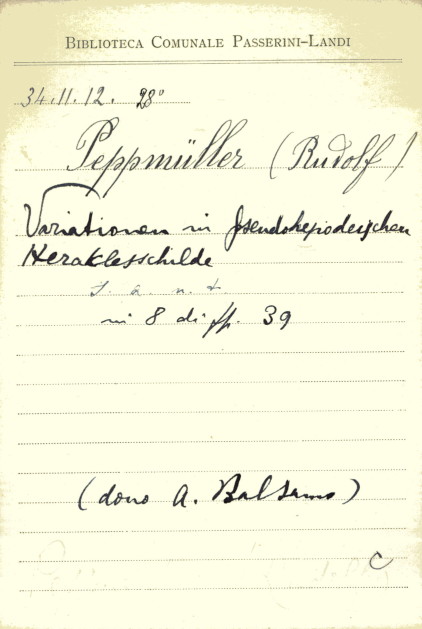 BIBLIOTECA COMUNALE PASSERINI-LANDI
34.11.12. 28°
Peppmüller (Rudolf)
Variationen in Pseudohesiodeischen
Heraklesschilde
s. a. n. t.
in 8 di pp. 39
(dono A. Balsamo)
C